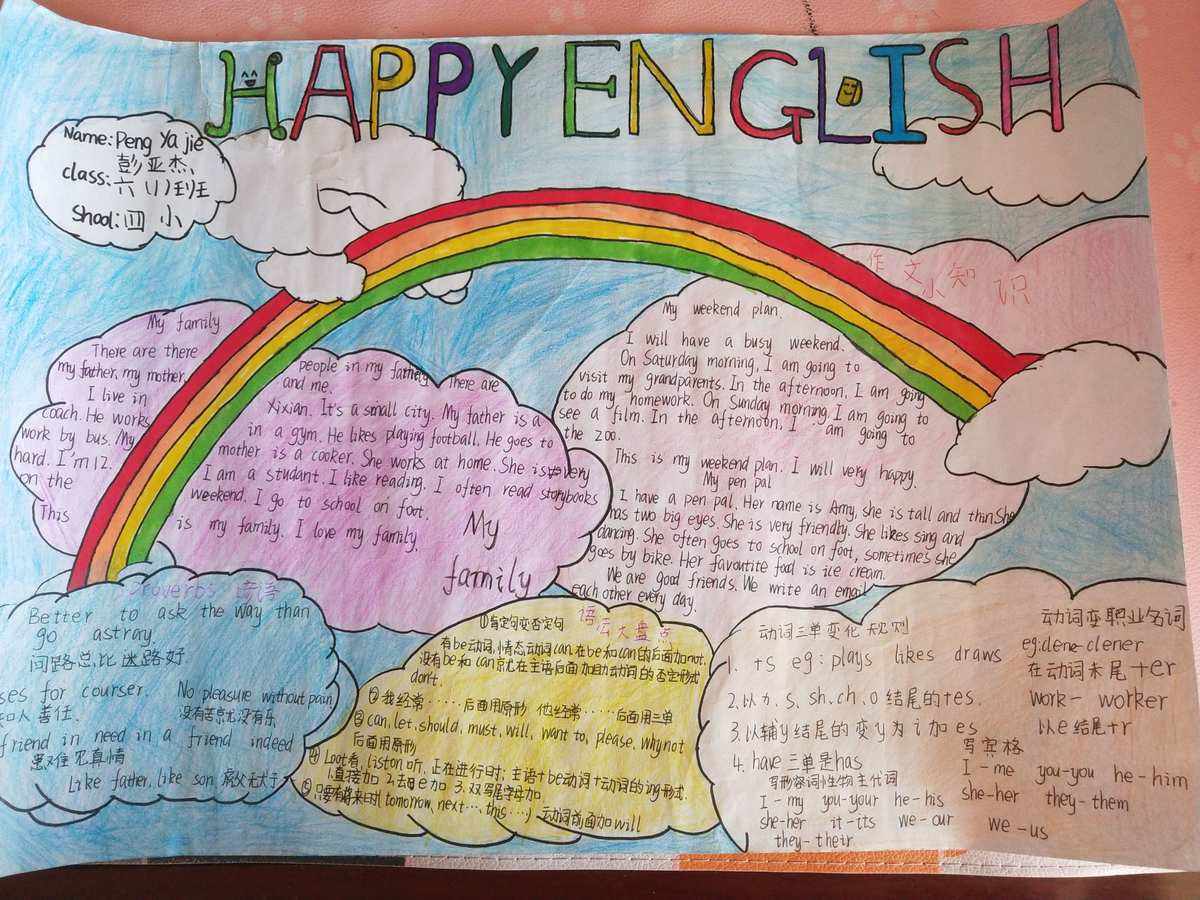 HAPPY ENGLISH
Name: Peng Ya jie
彭亚杰
class: 六(1)班
Shool: 四小
作文小知识
My family
There are there people in my fathery There are
my father, my mother, and me.
I live in Xixian. It's a small city. My father is a
coach. He works in a gym. He likes playing football. He goes to
work by bus. My mother is a cooker. She works at home. She is very
hard. I'm 12. I am a studant. I like reading. I often read storybooks
on the weekend. I go to school on foot.
This is my family. I love my family.
My
family
My weekend plan.
I will have a busy weekend.
On Saturday morning, I am going to
visit my grandparents. In the afternoon, I am going
to do my homework. On Sunday morning, I am going to
see a film. In the afternoon, I am going to
the zoo.
This is my weekend plan. I will very happy.
My pen pal
I have a pen pal. Her name is Amy, she is tall and thin She
has two big eyes. She is very friendly. She likes sing and
dancing. She often goes to school on foot, sometimes she
goes by bike. Her favountite food is ice cream.
We are good friends. We write an email
each other every day.
Proverbs
Better to ask the way than
go astray
问路总比迷路好.
ses for courser. No pleasure without pain
知人善任. 没有苦就没有乐
friend in need in a friend indeed
患难见真情
Like father, like son
语法大盘点
①肯定句变否定句
有be动词,情态动词can,在be和can的后面加not,
没有be和can就在主语后面加助动词的否定形式
don't.
②我经常……后面用原形 他经常……后面用三单
③can, let, should, must, will, want to, please, why not
后面用原形
④Loot看, liston听, 正在进行时: 主语+be动词+动词的ing形式.
1.直接加 2.去e加 3.双写尾字母加
⑤只要将来时( tomorrow, next…, this…) 动词前面加will
动词三单变化规则
1. +s eg: plays likes draws
2.以x, s, sh, ch, o结尾的+es.
3.以辅y结尾的变y为i加es
4. have三单是has
写形容词性物主代词
I-my you-your he-his
she-her it-its we-our
they-their
动词变职业名词
eg: clene-clener
在动词末尾+er
work- worker
以e结尾+r
写宾格
I-me you-you he-him
she-her they-them
we-us